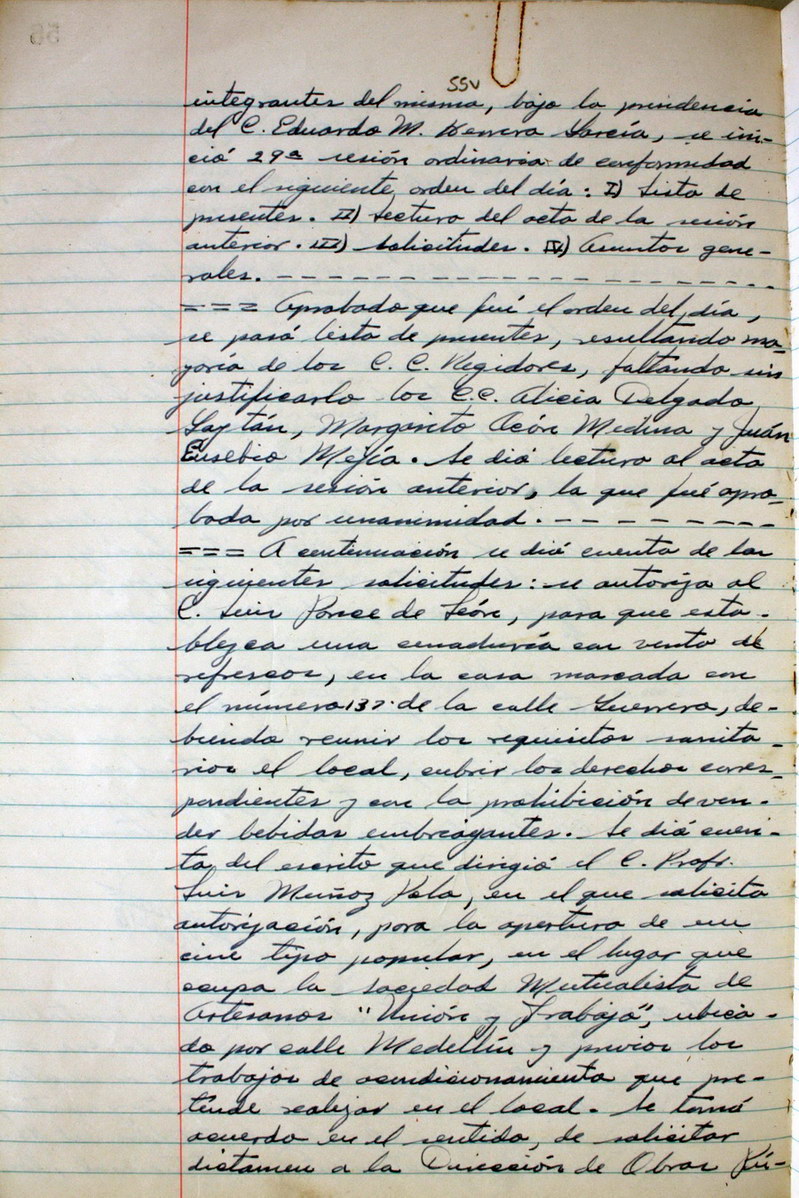 55v
integrantes del mismo, bajo la presidencia
del C. Eduardo M. Herrera García, se ini-
ció 29a sesión ordinaria de conformidad
con el siguiente orden del día: I) Lista de
presentes. II) Lectura del acta de la sesión
anterior. III) Solicitudes. IV) Asuntos gene-
rales. - - - - - - - - - - - - - - - - -
=== Aprobado que fué el orden del día,
se pasó lista de presentes, resultando ma-
yoría de los C. C. Regidores, faltando sin
justificarlo los C.C. Alicia Delgado
Gaytán, Margarito Medina y Juán
Eusebio Mejía. Se dió lectura al acta
de la sesión anterior, la que fué apro-
bada por unanimidad. - - - - - - - -
=== A continuación se dió cuenta de las
siguientes solicitudes: se autoriza al
C. Luis Ponce de León, para que esta-
blezca una cenaduría con venta de
refrescos, en la casa marcada con
el número 137 de la calle Guerrero, de-
biendo reunir los requisitos sanita-
rios el local, cubrir los derechos corres-
pondientes y con la prohibición de ven-
der bebidas embreagantes. Se dió cuen-
ta del escrito que dirigió el C. Profr.
Luis Muñoz en el que solicita
autorización, para la apertura de un
cine tipo popular, en el lugar que
ocupa la Sociedad Mutualista de
Artesanos "Unión y Trabajo", ubica-
do por calle Medellín y previos los
trabajos de acondicionamiento que pre-
tende realizar en el local. Se tomó
acuerdo en el sentido, de solicitar
dictamen a la Dirección de Obras Pú-